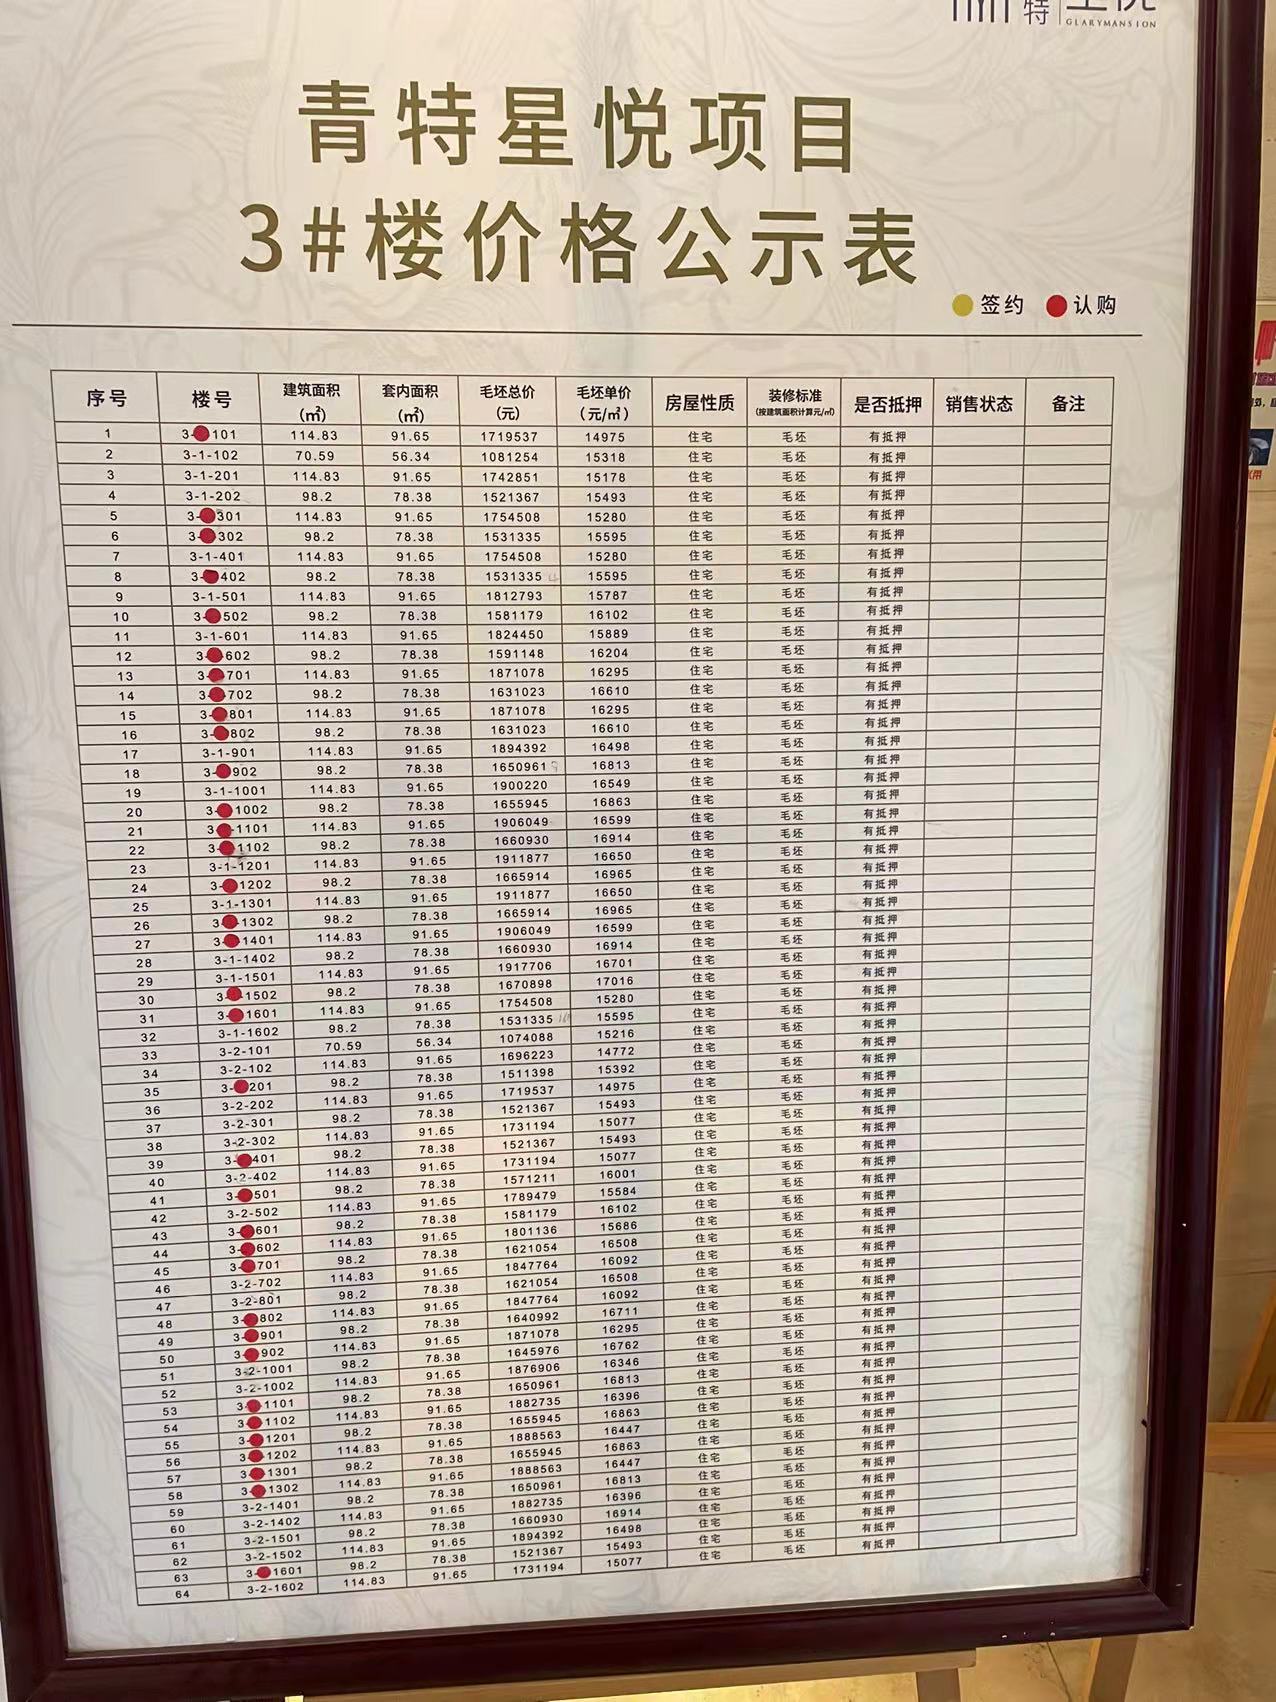 特
GLARYMANSION
青特星悦项目
3#楼价格公示表
签约 认购
序号 楼号 建筑面积(㎡) 套内面积(㎡) 毛坯总价(元) 毛坯单价(元/㎡) 房屋性质 装修标准(按建筑面积计算元/㎡) 是否抵押 销售状态 备注
1 3-101 114.83 91.65 1719537 14975 住宅 毛坯 有抵押
2 3-1-102 70.59 56.34 1081254 15318 住宅 毛坯 有抵押
3 3-1-201 114.83 91.65 1742851 15178 住宅 毛坯 有抵押
4 3-1-202 98.2 78.38 1521367 15493 住宅 毛坯 有抵押
5 3-301 114.83 91.65 1754508 15280 住宅 毛坯 有抵押
6 3-302 98.2 78.38 1531335 15595 住宅 毛坯 有抵押
7 3-1-401 114.83 91.65 1754508 15280 住宅 毛坯 有抵押
8 3-402 98.2 78.38 1531335 15595 住宅 毛坯 有抵押
9 3-1-501 114.83 91.65 1812793 15787 住宅 毛坯 有抵押
10 3-502 98.2 78.38 1581179 16102 住宅 毛坯 有抵押
11 3-1-601 114.83 91.65 1824450 15889 住宅 毛坯 有抵押
12 3-602 98.2 78.38 1591148 16204 住宅 毛坯 有抵押
13 3-701 114.83 91.65 1871078 16295 住宅 毛坯 有抵押
14 3-702 98.2 78.38 1631023 16610 住宅 毛坯 有抵押
15 3-801 114.83 91.65 1871078 16295 住宅 毛坯 有抵押
16 3-802 98.2 78.38 1631023 16610 住宅 毛坯 有抵押
17 3-1-901 114.83 91.65 1894392 16498 住宅 毛坯 有抵押
18 3-902 98.2 78.38 1650961 16813 住宅 毛坯 有抵押
19 3-1-1001 114.83 91.65 1900220 16549 住宅 毛坯 有抵押
20 3-1002 98.2 78.38 1655945 16863 住宅 毛坯 有抵押
21 3-1101 114.83 91.65 1906049 16599 住宅 毛坯 有抵押
22 3-1102 98.2 78.38 1660930 16914 住宅 毛坯 有抵押
23 3-1-1201 114.83 91.65 1911877 16650 住宅 毛坯 有抵押
24 3-1202 98.2 78.38 1665914 16965 住宅 毛坯 有抵押
25 3-1-1301 114.83 91.65 1911877 16650 住宅 毛坯 有抵押
26 3-1302 98.2 78.38 1665914 16965 住宅 毛坯 有抵押
27 3-1401 114.83 91.65 1906049 16599 住宅 毛坯 有抵押
28 3-1-1402 98.2 78.38 1660930 16914 住宅 毛坯 有抵押
29 3-1-1501 114.83 91.65 1917706 16701 住宅 毛坯 有抵押
30 3-1502 98.2 78.38 1670898 17016 住宅 毛坯 有抵押
31 3-1601 114.83 91.65 1754508 15280 住宅 毛坯 有抵押
32 3-1-1602 98.2 78.38 1531335 15595 住宅 毛坯 有抵押
33 3-2-101 70.59 56.34 1074088 15216 住宅 毛坯 有抵押
34 3-2-102 114.83 91.65 1696223 14772 住宅 毛坯 有抵押
35 3-201 98.2 78.38 1511398 15392 住宅 毛坯 有抵押
36 3-2-202 114.83 91.65 1719537 14975 住宅 毛坯 有抵押
37 3-2-301 98.2 78.38 1521367 15493 住宅 毛坯 有抵押
38 3-2-302 114.83 91.65 1731194 15077 住宅 毛坯 有抵押
39 3-401 98.2 78.38 1521367 15493 住宅 毛坯 有抵押
40 3-2-402 114.83 91.65 1731194 15077 住宅 毛坯 有抵押
41 3-501 98.2 78.38 1571211 16001 住宅 毛坯 有抵押
42 3-2-502 114.83 91.65 1789479 15584 住宅 毛坯 有抵押
43 3-601 98.2 78.38 1581179 16102 住宅 毛坯 有抵押
44 3-602 114.83 91.65 1801136 15686 住宅 毛坯 有抵押
45 3-701 98.2 78.38 1621054 16508 住宅 毛坯 有抵押
46 3-2-702 114.83 91.65 1847764 16092 住宅 毛坯 有抵押
47 3-2-801 98.2 78.38 1621054 16508 住宅 毛坯 有抵押
48 3-802 114.83 91.65 1847764 16092 住宅 毛坯 有抵押
49 3-901 98.2 78.38 1640992 16711 住宅 毛坯 有抵押
50 3-902 114.83 91.65 1871078 16295 住宅 毛坯 有抵押
51 3-2-1001 98.2 78.38 1645976 16762 住宅 毛坯 有抵押
52 3-2-1002 114.83 91.65 1876906 16346 住宅 毛坯 有抵押
53 3-1101 98.2 78.38 1650961 16813 住宅 毛坯 有抵押
54 3-1102 114.83 91.65 1882735 16396 住宅 毛坯 有抵押
55 3-1201 98.2 78.38 1655945 16863 住宅 毛坯 有抵押
56 3-1202 114.83 91.65 1888563 16447 住宅 毛坯 有抵押
57 3-1301 98.2 78.38 1655945 16863 住宅 毛坯 有抵押
58 3-1302 114.83 91.65 1888563 16447 住宅 毛坯 有抵押
59 3-2-1401 98.2 78.38 1650961 16813 住宅 毛坯 有抵押
60 3-2-1402 114.83 91.65 1882735 16396 住宅 毛坯 有抵押
61 3-2-1501 98.2 78.38 1660930 16914 住宅 毛坯 有抵押
62 3-2-1502 114.83 91.65 1894392 16498 住宅 毛坯 有抵押
63 3-1601 98.2 78.38 1521367 15493 住宅 毛坯 有抵押
64 3-2-1602 114.83 91.65 1731194 15077 住宅 毛坯 有抵押